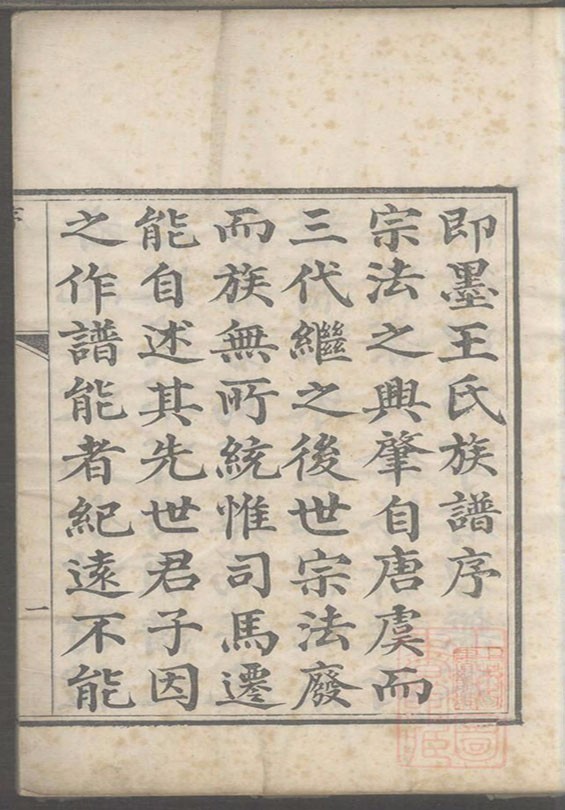 即墨王氏族譜序
宗法之興肇自唐虞而
三代繼之後世宗法廢
而族無所統惟司馬遷
能自述其先世君子因
之作譜能者紀遠不能
一